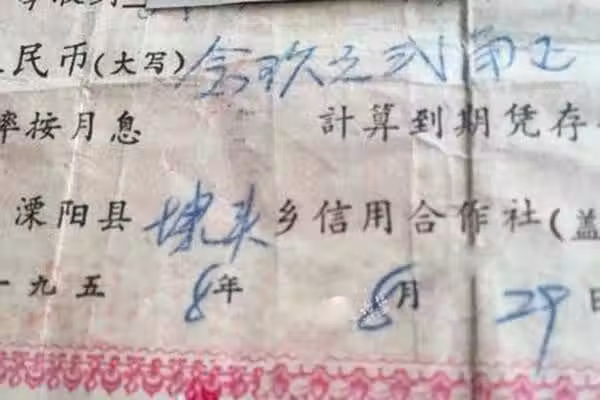 民币(大写)零玖元贰角正
率按月息 計算到期凭存
溧阳县埭头乡信用合作社(盖
一九五8年8月29日